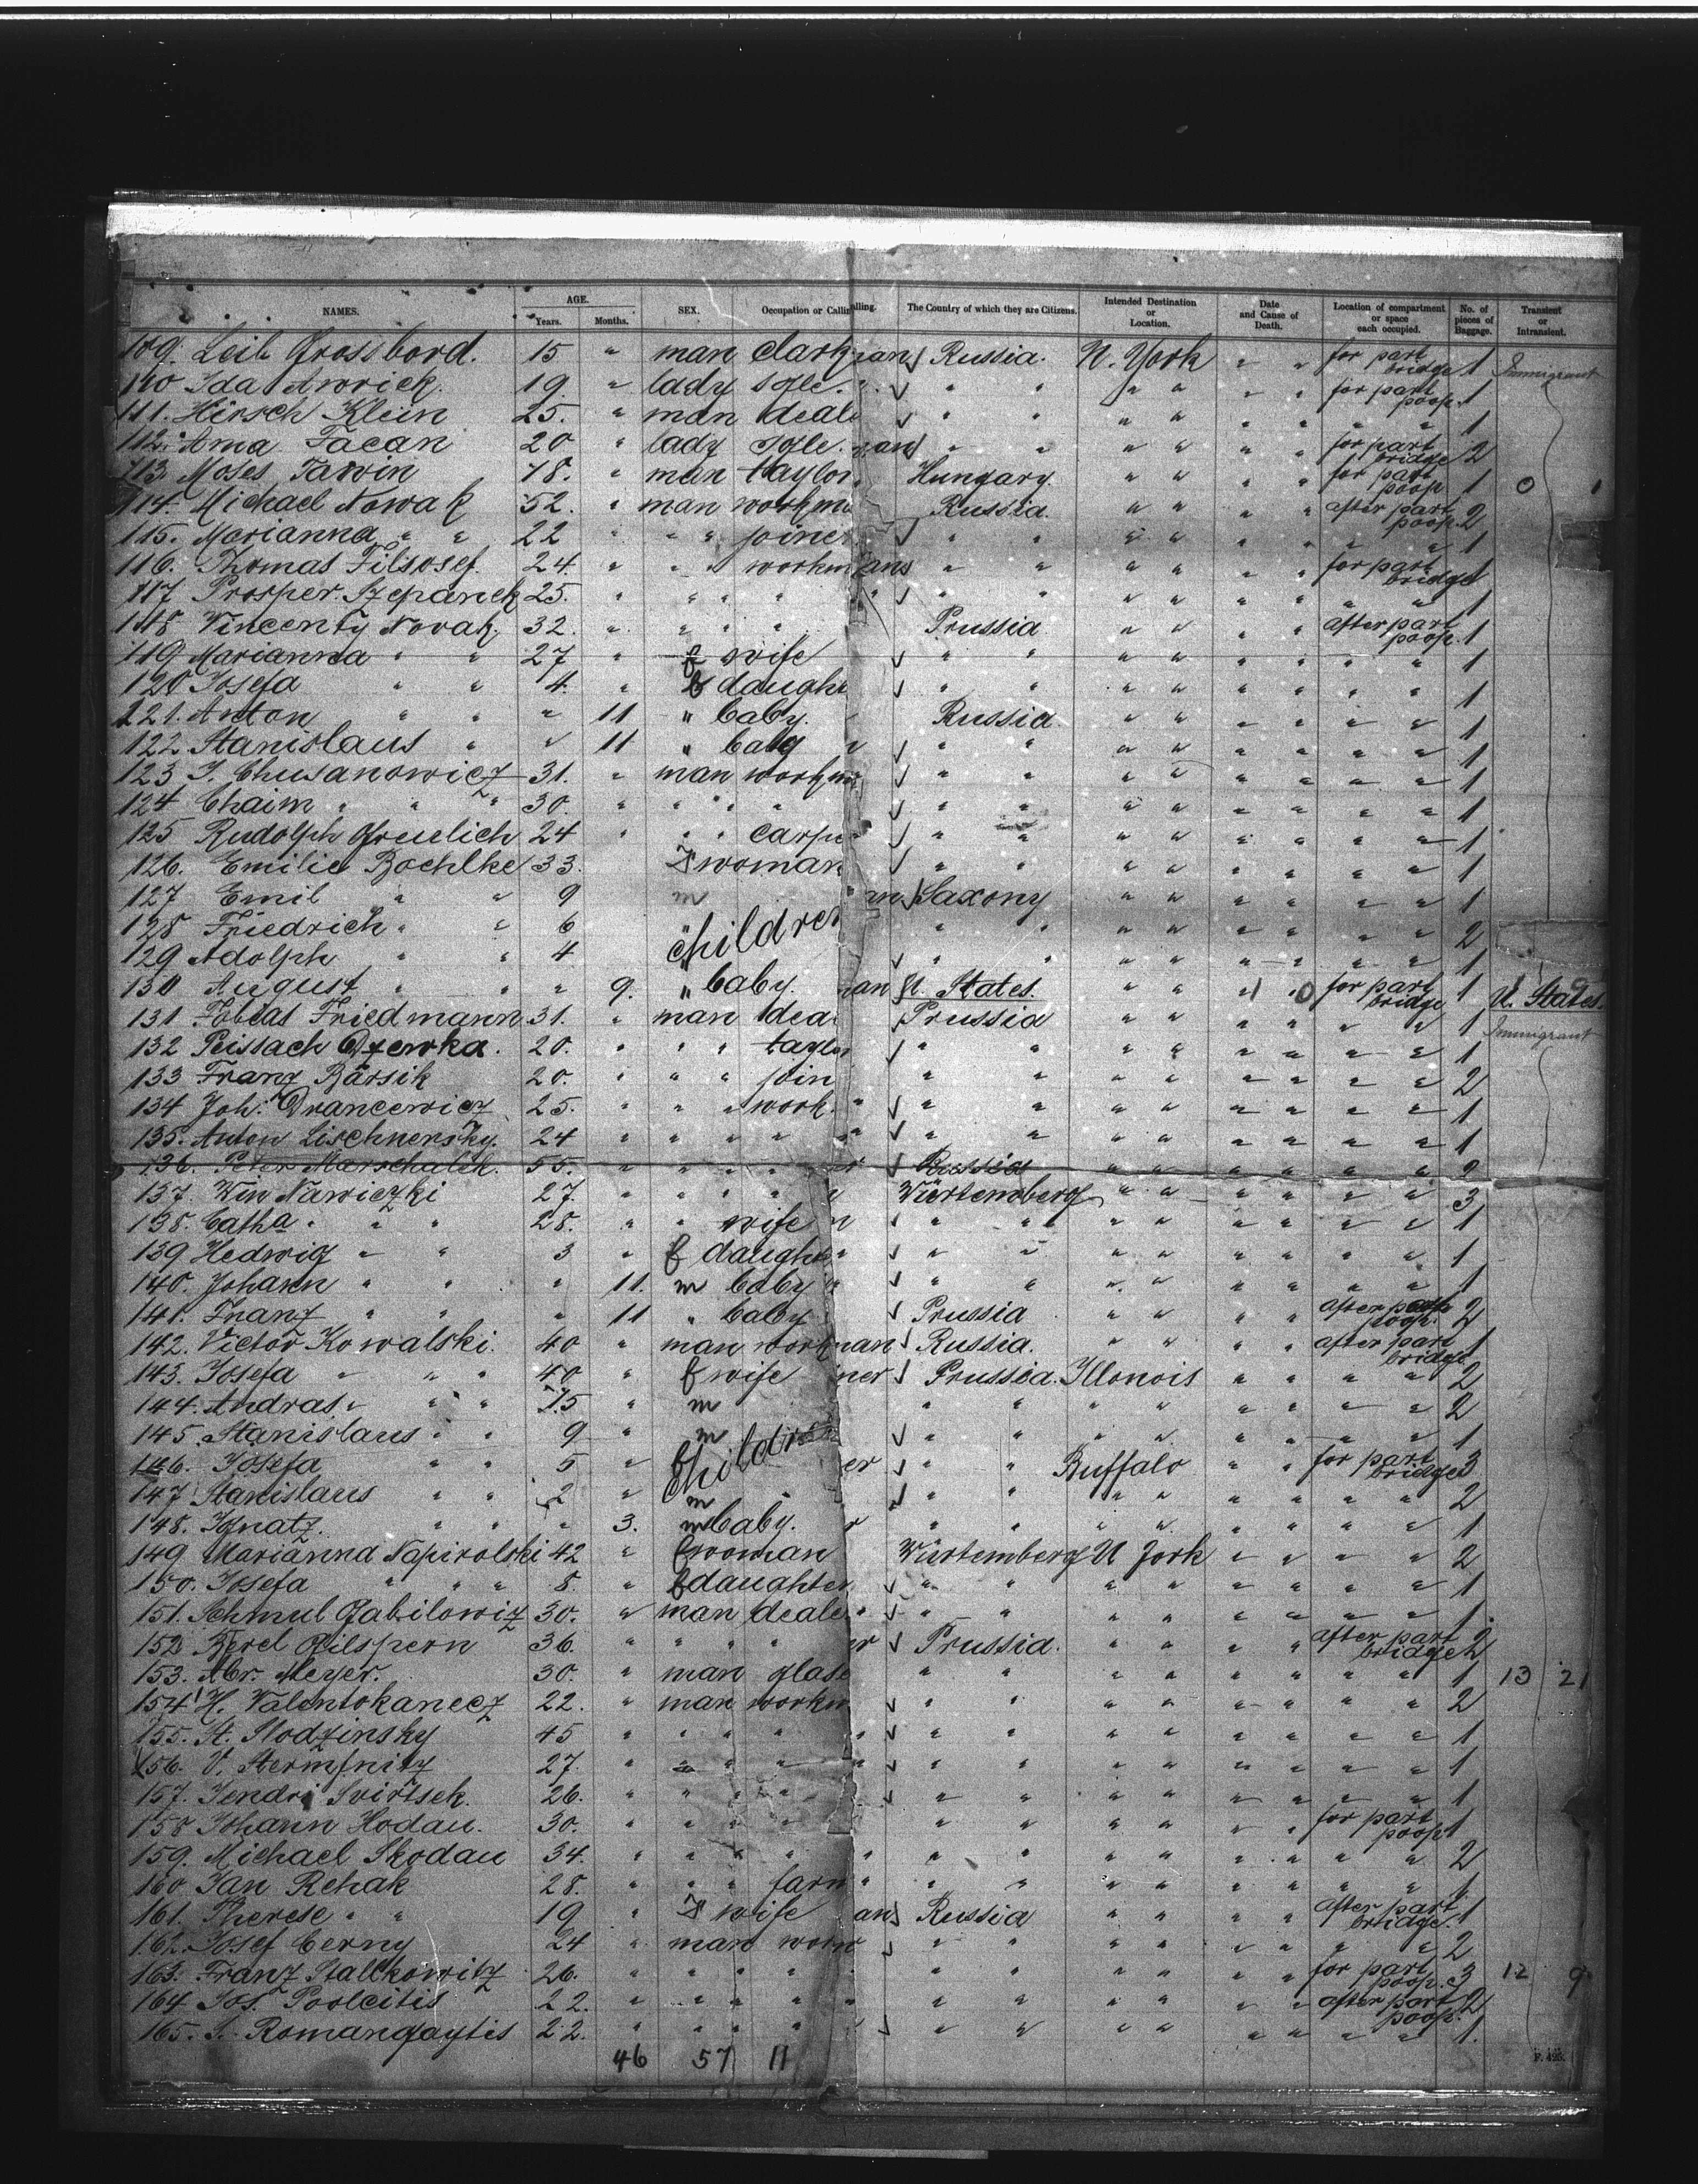 NAMES. AGE. Years. Months. SEX. Occupation or Calling. The Country of which they are Citizens. Intended Destination or Location. Date and Cause of Death. Location of compartment or space each occupied. No. of pieces of Baggage. Transient or Intransient.
109. Leib Grossbord. 15 " man clark man Russia. N. York " " for part bridge 1 Immigrant
110 Ida Awrick. 19. " lady sgle. " " " " " " " for part poop. 1
111. Hirsch Klein 25. " man deale " " " " " " 1
112. Ama Tacan 20 " lady sgle. " " " " " " for part bridge 2
113. Moses Tawin 18. " man taylor Hungary " " " " for part poop 1 0 1
114. Michael Nowak 52. " man workma Russia. " " " " after part poop. 2
115. Marianna " " 22 " " " joiner " " " " " " " " 1
116. Thomas Filsosef. 24. " " " workm " " " " " " for part bridge 1
117 Prosper Szepanek 25. " " " " " " " " " " " " 1
118 Vincenty Novak. 32. " " " " Prussia " " " " after part poop. 1
119 Marianna " " 27 " f wife " " " " " " " " 1
120 Josefa " " 4. " f daught " " " " " " " " 1
121. Anton " " " 11 " baby. Russia " " " " " " 1
122 Stanislaus " " 11 " baby " " " " " " " " 1
123 J. Chusanowicz 31. " man workma " " " " " " " " 1
124 Chaim " " " 30. " " " " " " " " " " " " 1
125 Rudolph Greulich 24 " " " carpe " " " " " " " " 1
126. Emilie Bochlke 33. F woman " " " " " " " " 1
127 Emil " " 9 m Saxony " " " " " " 1
128 Friedrich " " 6 " children " " " " " " " " 2
129 Adolph " " 4 " " " " " " " " " 1
130 August " " " 9. " baby. U. States. " " 1 0 for part bridge 1 U. States.
131 Tobias Friedmann 31. " man dea Prussia " " " " " " 1 Immigrant
132 Peissach 20. " " " taylor " " " " " " " " 1
133 Franz Bärsik 20. " " " join " " " " " " " " 2
134 Joh. 25. " " " work. " " " " " " " " 1
135. Anton Lischnersky. 24 " " " " " " " " " " " " 1
136. Peter Marschalek. 55. " " " " Russia " " " " " " 2
137. Win Nawiczki 27. " " " " Würtemberg " " " " " " 3
138. Catha " " " 28. " " wife " " " " " " " " 1
139 Hedwig " " 3 " f daughte " " " " " " " " 1
140. Johann " " " 11. m baby " " " " " " " " 1
141. Franz " " " 11 " baby Prussia " " " " after part poop. 2
142. Victor Kowalski. 40 " man workman Russia. " " " " after part bridge 1
143. Josefa " " " 40 " f wife Prussia. Illonois " " " " 2
144. Andras " " " 15 " m " " " " " " " " 2
145. Stanislaus " " 9 " m " " " " " " " " 1
146. Josefa " " 5 " f children " " Buffalo " " for part bridge 3
147 Stanislaus " " 2 " m " " " " " " " " 2
148. Ignatz. " " " 3. m baby. " " " " " " " " 1
149 Marianna Napirolski 42 " f woman Würtemberg N York " " " " 2
150. Josefa " " " 8. " f daughter " " " " " " " " 1
151. Schmul Gabilowiz 30. " man deale " " " " " " " " 1
152 Berel Gilspern 36. " " " " Prussia. " " " " after part bridge 2
153. Abr. Meyer. 30. " man glase " " " " " " " " 1 13 21
154 H. Valentokanecz 22. " man workm " " " " " " " " 2
155. St. Slodzinsky 45 " " " " " " " " " " " " 1
156. V. 27. " " " " " " " " " " " " 1
157. Jendri Svirtsek. 26. " " " " " " " " " " " " 1
158 Johann Hodau. 30. " " " " " " " " " " for part poop 1
159. Michael Skodau 34. " " " " " " " " " " " " 2
160 Jan Rehak 28. " " " farm " " " " " " " " 1
161. Therese " " 19 " F wife Russia " " " " after part bridge. 1
162. Josef Cerny 24 " man work " " " " " " " " 2
163. Franz Stalkowitz 26. " " " " " " " " " " for part poop. 3 12 9
164 Jos. Poolcitis 22. " " " " " " " " " " after part poop. 2
165. S. Romangaytis 22. " " " " " " " " " " " " 1.
46 57 11
F. 495.